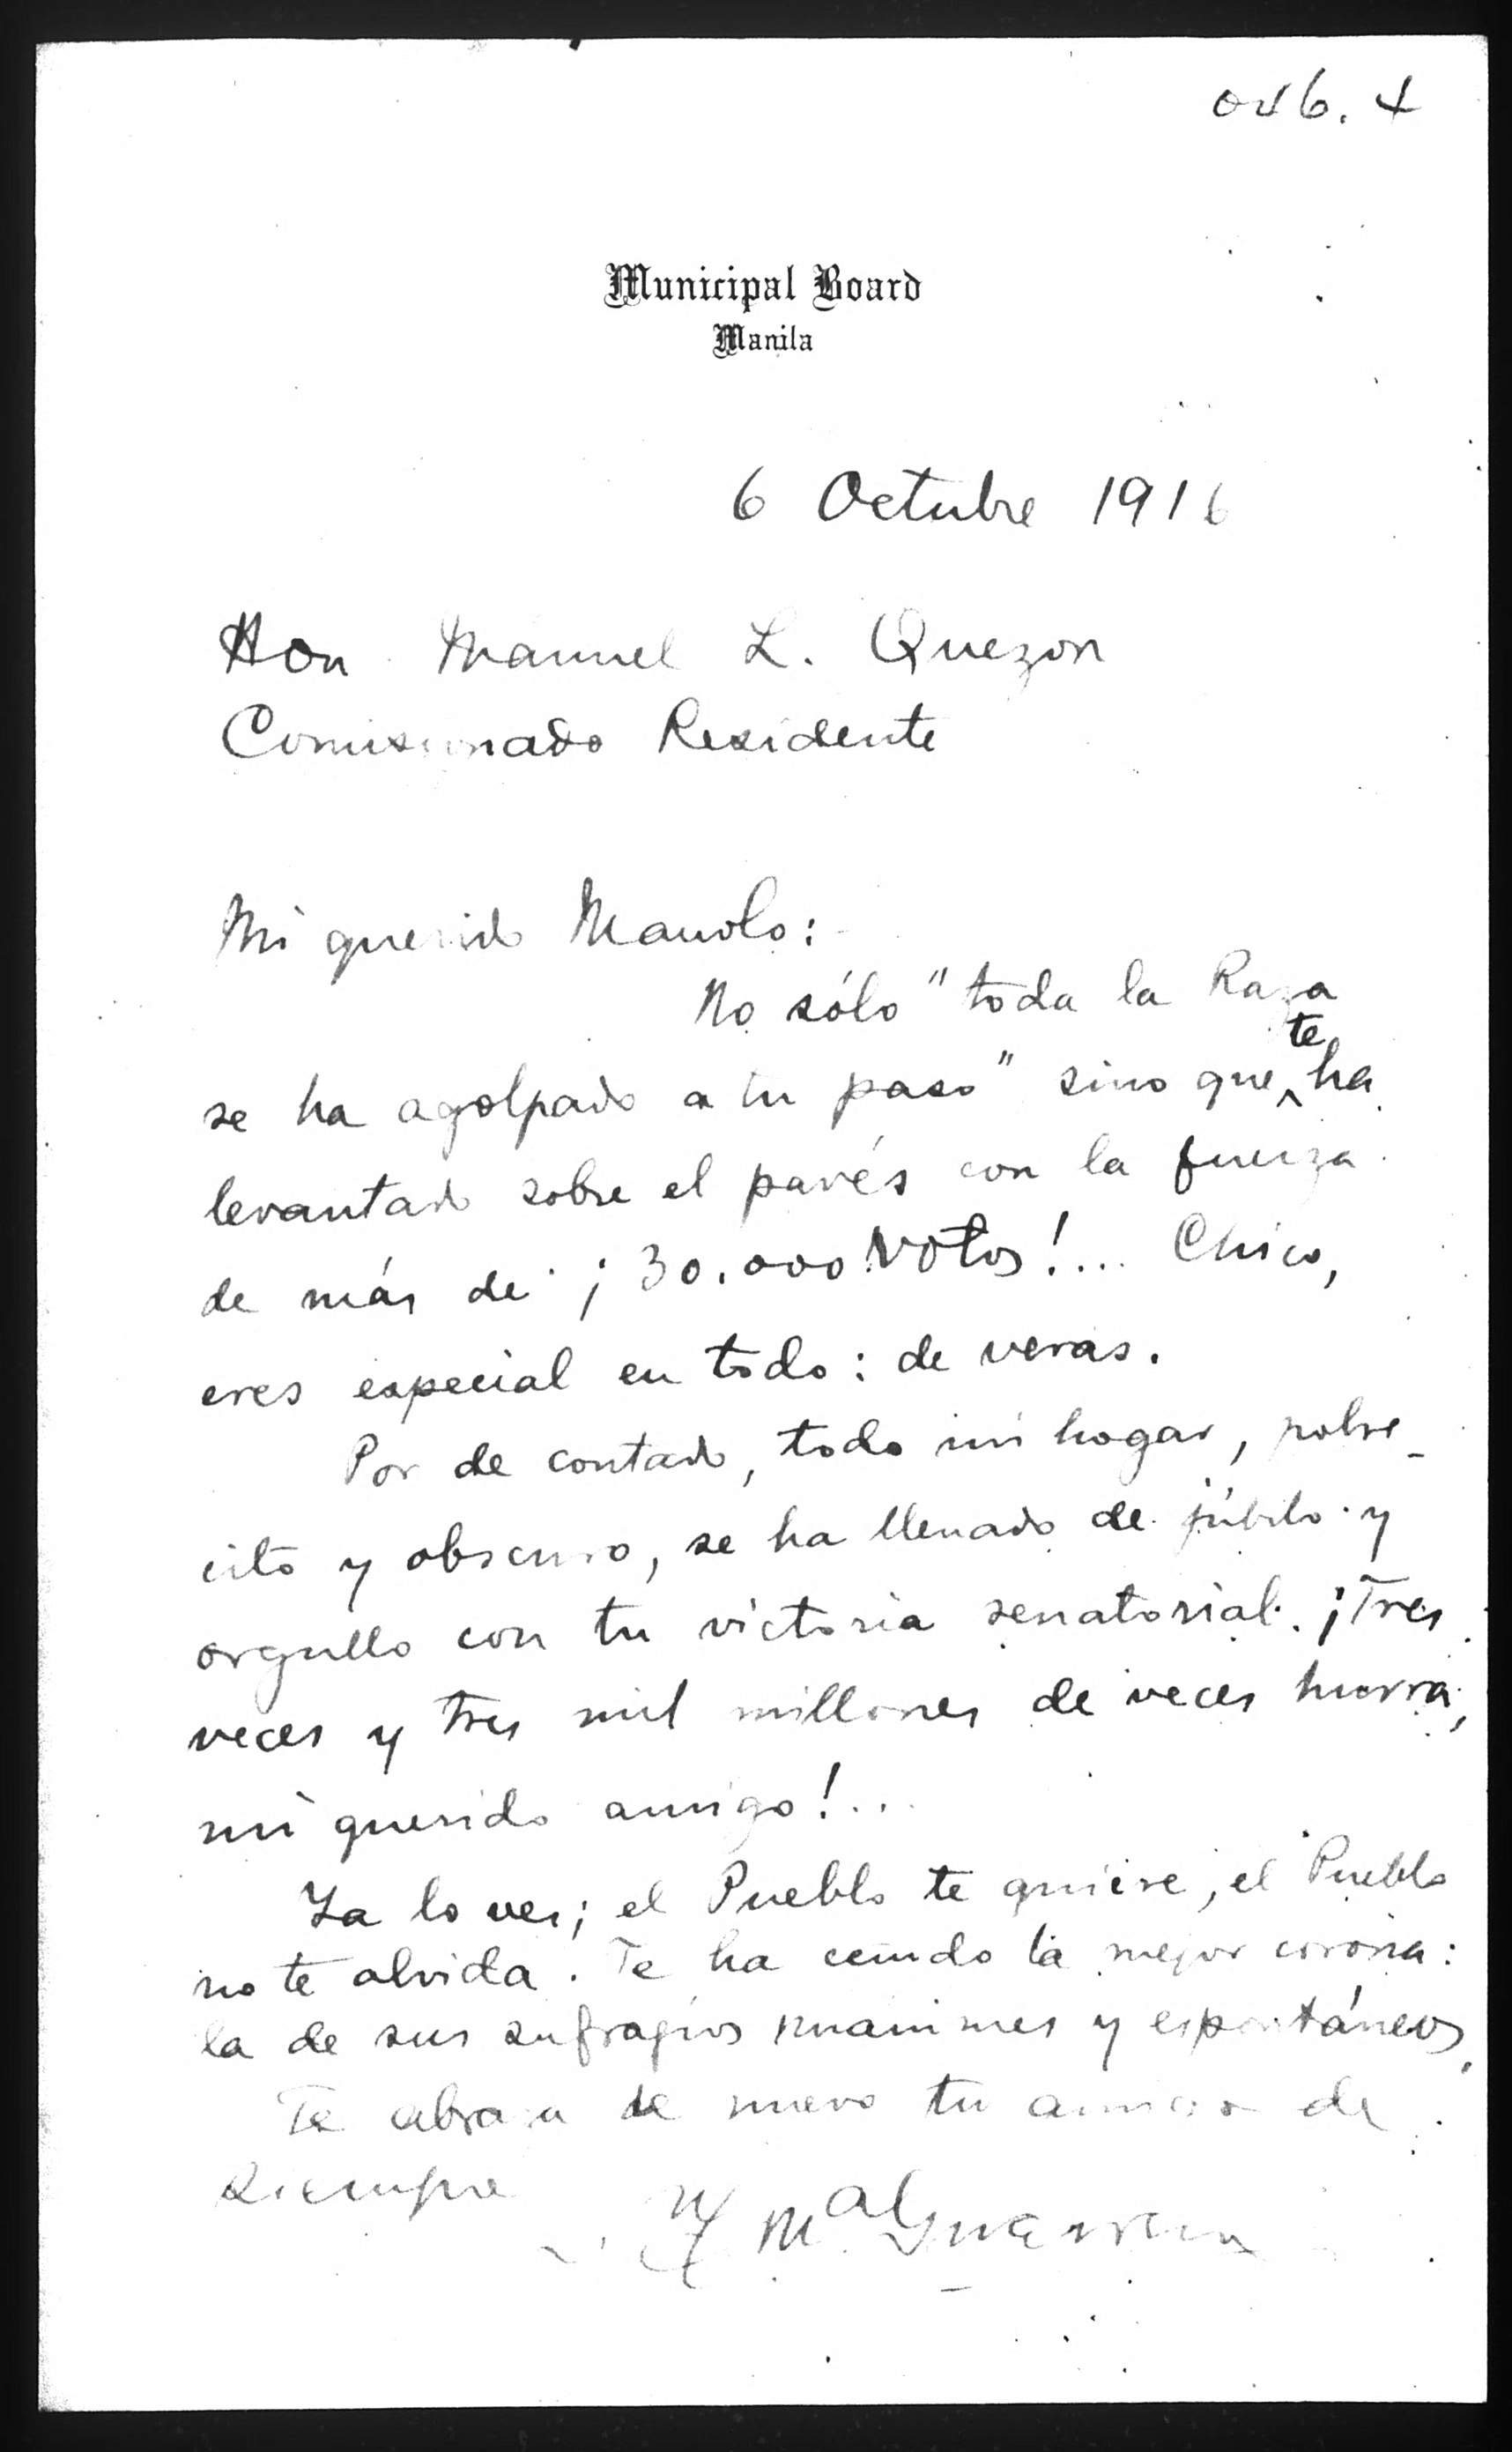 Municipal Board
Manila
6 Octubre 1916
Hon Manuel L. Quezon
Comisionado Residente
Mi querido Manolo:
No sólo "toda la Raza
se ha agolpado a tu paso" sino que te ha
levantado sobre el pavés con la fuerza
de más de ¡30.000 votos!... Chico,
eres especial en todo: de veras.
Por de contado, todo mi hogar, pobre-
cito y obscuro, se ha llenado de júbilo y
orgullo con tu victoria senatorial. ¡Tres
veces y tres mil millones de veces hurra,
mi querido amigo!...
Ya lo ves; el Pueblo te quiere, el Pueblo
no te olvida. Te ha ceñido la mejor corona:
la de sus sufragios unánimes y espontáneos.
Te abraza de nuevo tu amigo de
siempre
F Mª Guerrero